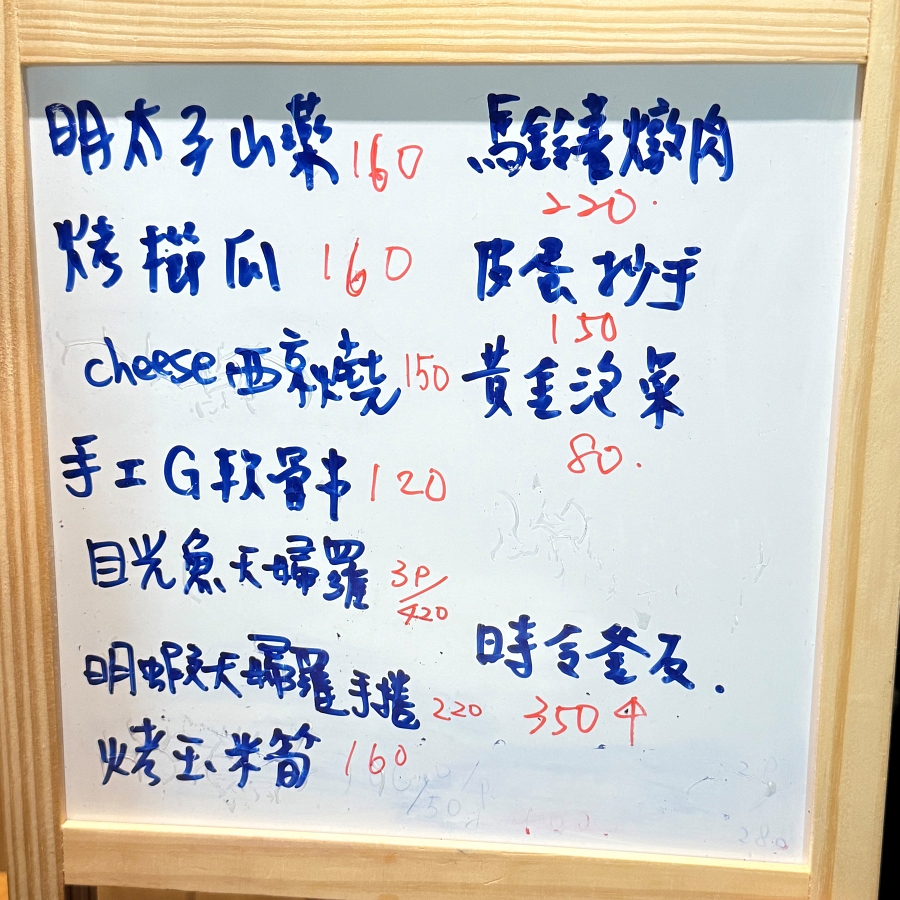 明太子山藥 160
烤櫛瓜 160
cheese西京燒 150
手工G軟骨串 120
目光魚天婦羅 3P/420
明蝦天婦羅手捲 220
烤玉米筍 160
馬鈴薯燉肉
220.
皮蛋抄手
150
黃金泡菜
80.
時令釜反.
350个